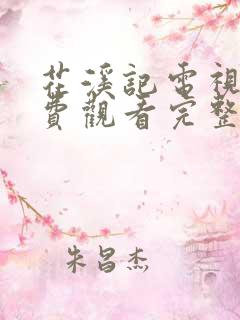 茳溪記電視
費觀看完整
朱昌杰